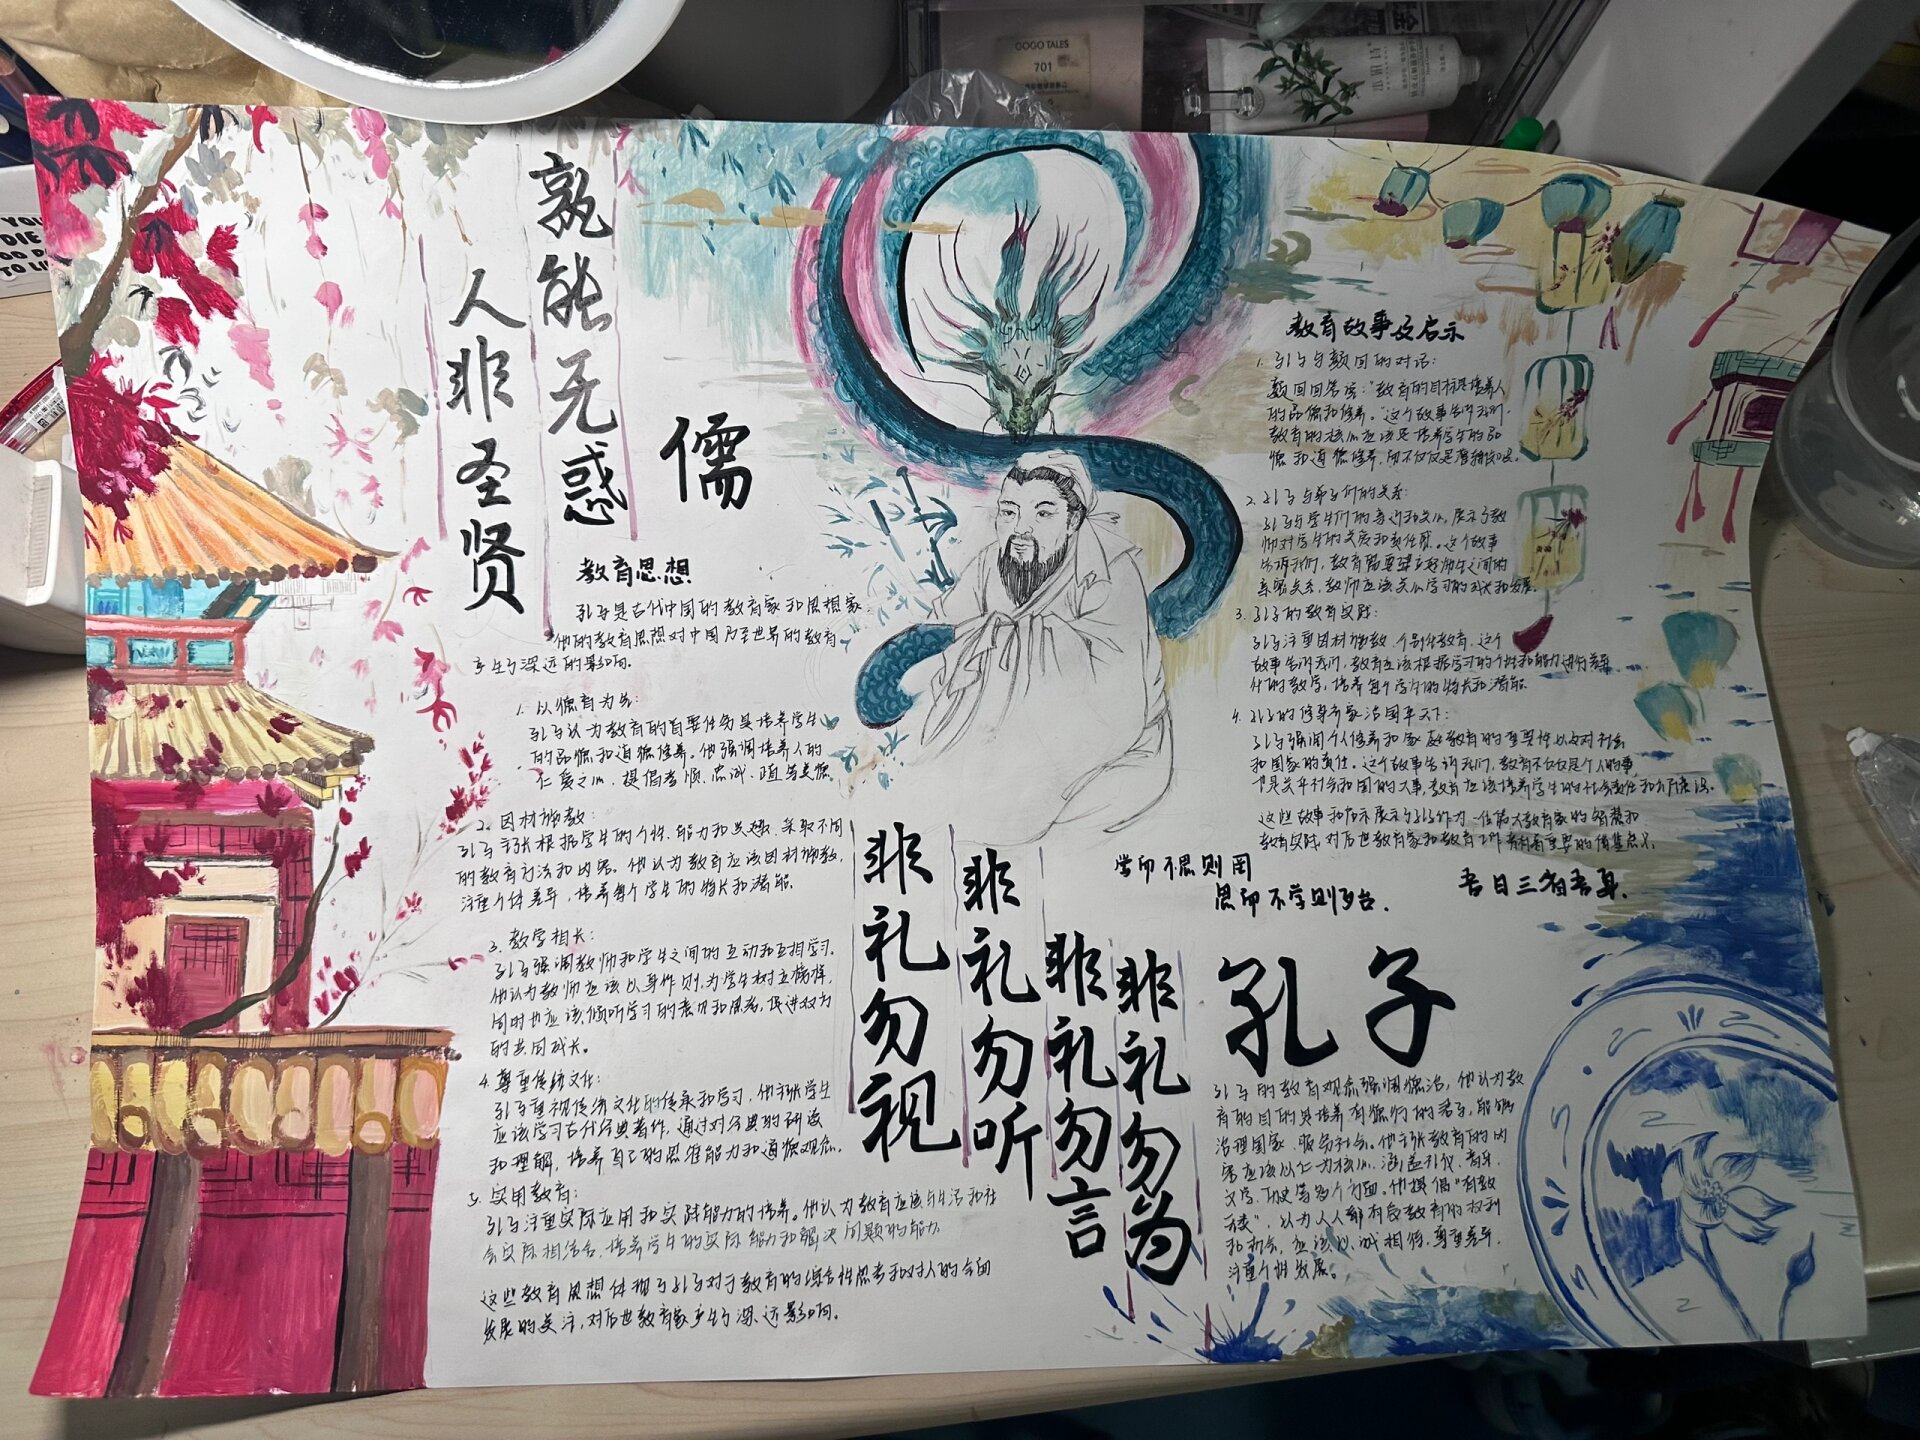 孰能无惑
人非圣贤
儒
教育思想
孔子是古代中国的教育家和思想家
他的教育思想对中国乃至世界的教育
产生了深远的影响。
1. 以德育为先:
孔子认为教育的首要任务是培养学生
的品德和道德修养。他强调培养人的
仁爱之心，提倡孝顺、忠诚、
2. 因材施教:
孔子主张根据学生的个性、能力和兴趣，采取不同
的教育方法和内容。他认为教育应该因材施教，
注重个体差异，培养每个学生的特长和潜能。
3. 教学相长:
孔子强调教师和学生之间的互动和互相学习。
他认为教师应该以身作则，为学生树立榜样，
同时也应该倾听学习的意见和思考，促进双方
的共同成长。
4. 尊重传统文化:
孔子重视传统文化的传承和学习，他主张学生
应该学习古代经典著作，通过对经典的研读
和理解，培养自己的思维能力和道德观念。
5. 实用教育:
孔子注重实际应用和实践能力的培养。他认为教育应该与生活和社
会实际相结合，培养学生的实际能力和解决问题的能力
这些教育思想体现了孔子对于教育的综合性思考和对人的全面
发展的关注，对后世教育家产生了深远影响。
非礼勿视
非礼勿听
非礼勿言
非礼勿为
教育故事及启示
1. 孔子与颜回的对话:
颜回回答说:"教育的目标是培养人
的品德和修养。"这个故事告诉我们，
教育的核心应该是培养学生的品
德和道德修养，而不仅仅是
2. 孔子与弟子们的关系:
孔子与学生们的亲近和关心，展示了教
师对学生的关展和责任感。这个故事
告诉我们，教育需要建立起师生之间的
亲密关系，教师应该关心学习的成长和发展。
3. 孔子的教育实践:
孔子注重因材施教，个别化教育，这个
故事告诉我们，教育应该根据学习的个性和能力进行差异
化的教学，培养每个学生的特长和潜能。
4. 孔子的修身齐家治国平天下:
孔子强调个人修养和家庭教育的重要性以及对社会
和国家的责任。这个故事告诉我们，教育不仅仅是个人的事，
是关乎社会和国的大事，教育应该培养学生的社会责任和
这些故事和启示展示了孔子作为一位伟大教育家的智慧和
教育实践，对后世教育家和教育工作者有着重要的借鉴意义。
学而不思则罔
思而不学则殆.
吾日三省吾身.
孔子
孔子的教育观念强调德治，他认为教
育的目的是培养有德行的君子，能够
治理国家、服务社会。他主张教育的内
容应该以仁为核心，涵盖礼仪、音乐、
文学、历史等多个方面。他提倡"有教
无类"，认为人人都有受教育的权利
和机会，应该以诚相待，尊重差异，
注重个性发展。
GOGO TALES
701
YOU
DIE
TO LI